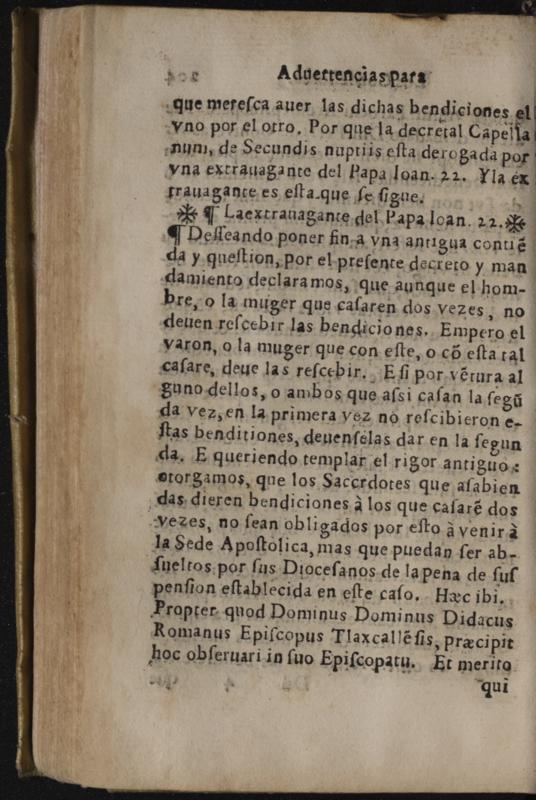 Aduertenciàs para
que mereſca auer las dichas bendiciones el
vno por el otro. Por que la decretal Capella
num, de Secundis nuptiis eſta derogada por
vna extrauagante del Papa Ioan. 22. Yla ex
trauagante es eſta que ſe ſigue.
❊ ¶ Laextrauagante del Papa Ioan. 22. ❊
¶ Deſſeando poner fin a vna antigua contiẽ
da y queſtion, por el preſente decreto y man
damiento declaramos, que aunque el hom-
bre, o la muger que caſaren dos vezes, no
deuen reſcebir las bendiciones. Empero el
varon, o la muger que con eſte, o cõ eſta tal
caſare, deue las reſcebir. E ſi por vẽtura al
guno dellos, o ambos que aſsi caſan la ſegũ
da vez, en la primera vez no reſcibieron e-
ſtas benditiones, deuenſelas dar en la ſegun
da. E queriendo templar el rigor antiguo:
otorgamos, que los Sacerdotes que aſabien
das dieren bendiciones à los que caſarẽ dos
vezes, no ſean obligados por eſto à venir à
la Sede Apoſtolica, mas que puedan ſer ab-
ſueltos por ſus Dioceſanos de la pena de ſuſ
penſion eſtablecida en eſte caſo. Hæc ibi.
Propter quod Dominus Dominus Didacus
Romanus Epiſcopus Tlaxcallẽſis, præcipit
hoc obſeruari in ſuo Epiſcopatu. Et merito
qui